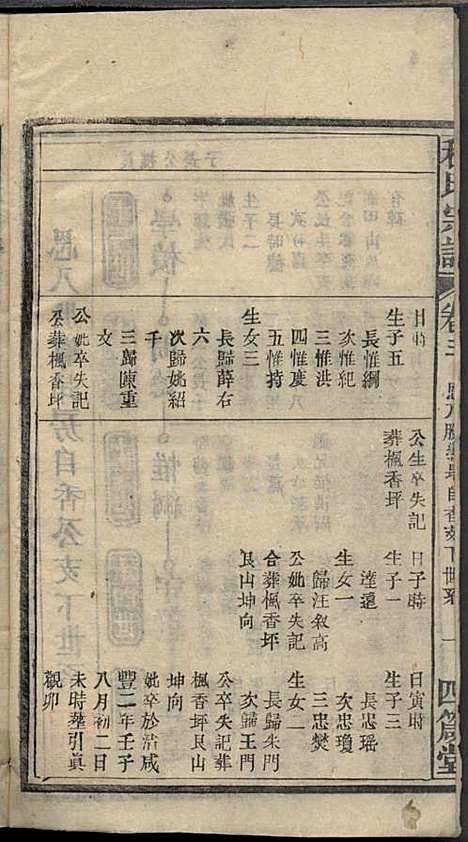 日時
生子五
長惟綱
次惟紀
三惟洪
四惟慶
五惟持
生女三
長歸薛右
六
次歸姚紹
千
三歸陳重
文
公妣卒失記
公葬楓香坪
公生卒失記
葬楓香坪
日子時
生子一
達遠
生女一
歸汪叙高
公妣卒失記
合葬楓香坪
艮山坤向
日寅時
生子三
長忠瑶
次忠瓊
三忠焚
生女二
長歸朱門
次歸王門
公卒失記葬
楓香坪艮山
坤向
妣卒於咸
豐二年壬子
八月初二日
未時葬引真
觀卯
氏宗譜
卷
自香支下世系
一
四箴堂